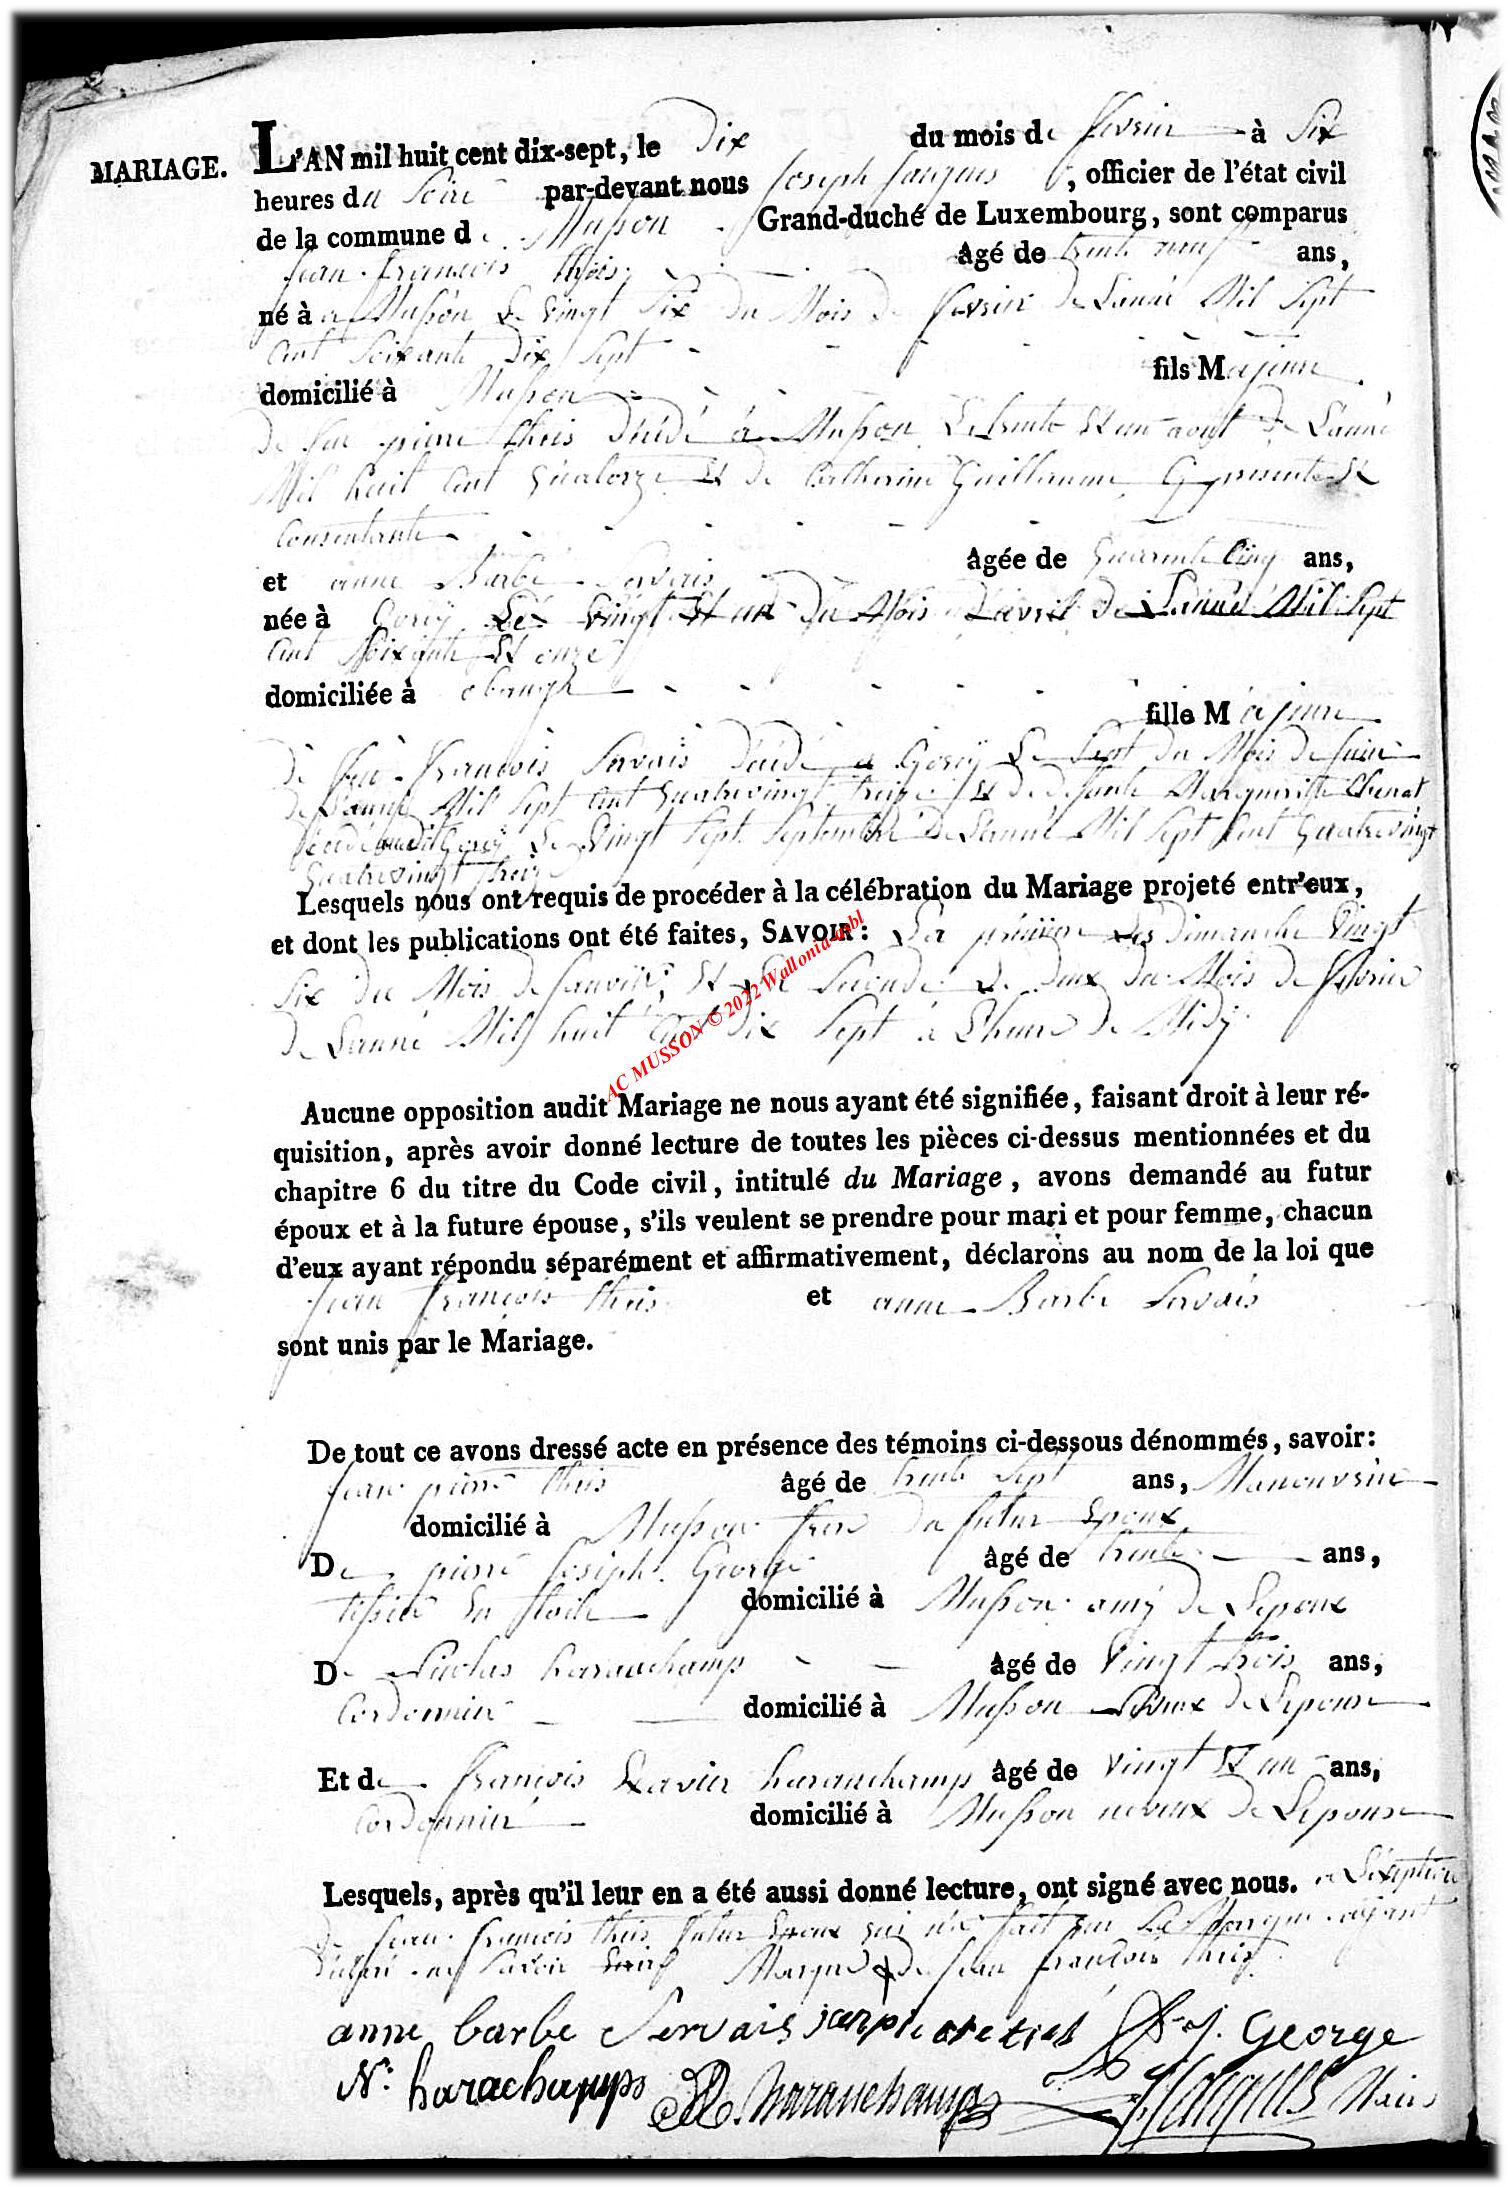 MARIAGE. L'AN mil huit cent dix-sept, le Dix du mois de fevrier à Six
heures du Soire par-devant nous Joseph Jacques, officier de l'état civil
de la commune de Musson Grand-duché de Luxembourg, sont comparus
Jean francois thies âgé de trente neuf ans,
né à a Musson Le vingt Six du Mois de fevrier de L'anné Mil Sept
Cent Soixante Dix Sept
domicilié à Musson fils Majeur
de feu pierre thies décédé à Musson Le trente Et un aout de L'anné
Mil huit Cent Quatorze Et de Catherine Guillaume Cy presente Et
Consentante
et anne Barbe Servais âgée de Quarante Cinq ans,
née à Gorcÿ Le vingt Et un du Mois d'avril de L'anné Mil Sept
Cent Soixante Et onze
domiciliée à obange fille Majeure
de feu francois Servais décédé a Gorcÿ Le Sept du Mois de Juin
de L'anné Mil Sept Cent Quatrevingt treize Et de defunte Margueritte
décédé audit Gorcÿ Le Vingt Sept Septembre De L'anné Mil Sept Cent Quatrevingt
Quatrevingt treize
Lesquels nous ont requis de procéder à la célébration du Mariage projeté entr'eux,
et dont les publications ont été faites, SAVOIR : La premiere Les Dimanche Vingt
Six du Mois de Janvier, Et La Seconde Le Deux du Mois de fevrier
de L'anné Mil huit Cent Dix Sept à L'heure de Midÿ
AC MUSSON © 2022 Wallonia-asbl
Aucune opposition audit Mariage ne nous ayant été signifiée, faisant droit à leur ré-
quisition, après avoir donné lecture de toutes les pièces ci-dessus mentionnées et du
chapitre 6 du titre du Code civil, intitulé du Mariage, avons demandé au futur
époux et à la future épouse, s'ils veulent se prendre pour mari et pour femme, chacun
d'eux ayant répondu séparément et affirmativement, déclarons au nom de la loi que
Jean françois thies et anne Barbe Servais
sont unis par le Mariage.
De tout ce avons dressé acte en présence des témoins ci-dessous dénommés, savoir:
Jean pierre thies âgé de trente Sept ans, Manouvrier
domicilié à Musson frere du futur Epoux
De pierre Joseph George âgé de trente ans,
tissier En toile domicilié à Musson amÿ de L'epoux
De Nicolas harauchamp âgé de Vingt trois ans,
Cordonnier domicilié à Musson Neveux de L'epouse
Et de francois Exavier harauchamp âgé de vingt Et un ans,
Cordonnier domicilié à Musson neveux de L'epouse
Lesquels, après qu'il leur en a été aussi donné lecture, ont signé avec nous. a L'exeption
de Jean francois thies futur Epoux qui n'a fait que Sa Marque ayant
déclaré ne Savoir Ecrire Marque + de Jean francois thies
anne barbe Servais jean pierre ties P. J. George
N: harachamps harauchamps J Jacques Maire